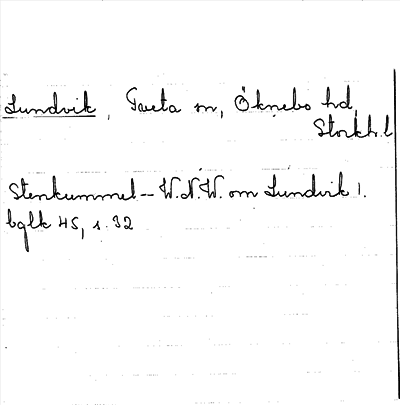 Lundvik, Taveta sn, Öknebo hd,
Stockh. l
Stenkummel – W.N.W. om Lundvik 1.
bglk 45, s. 32